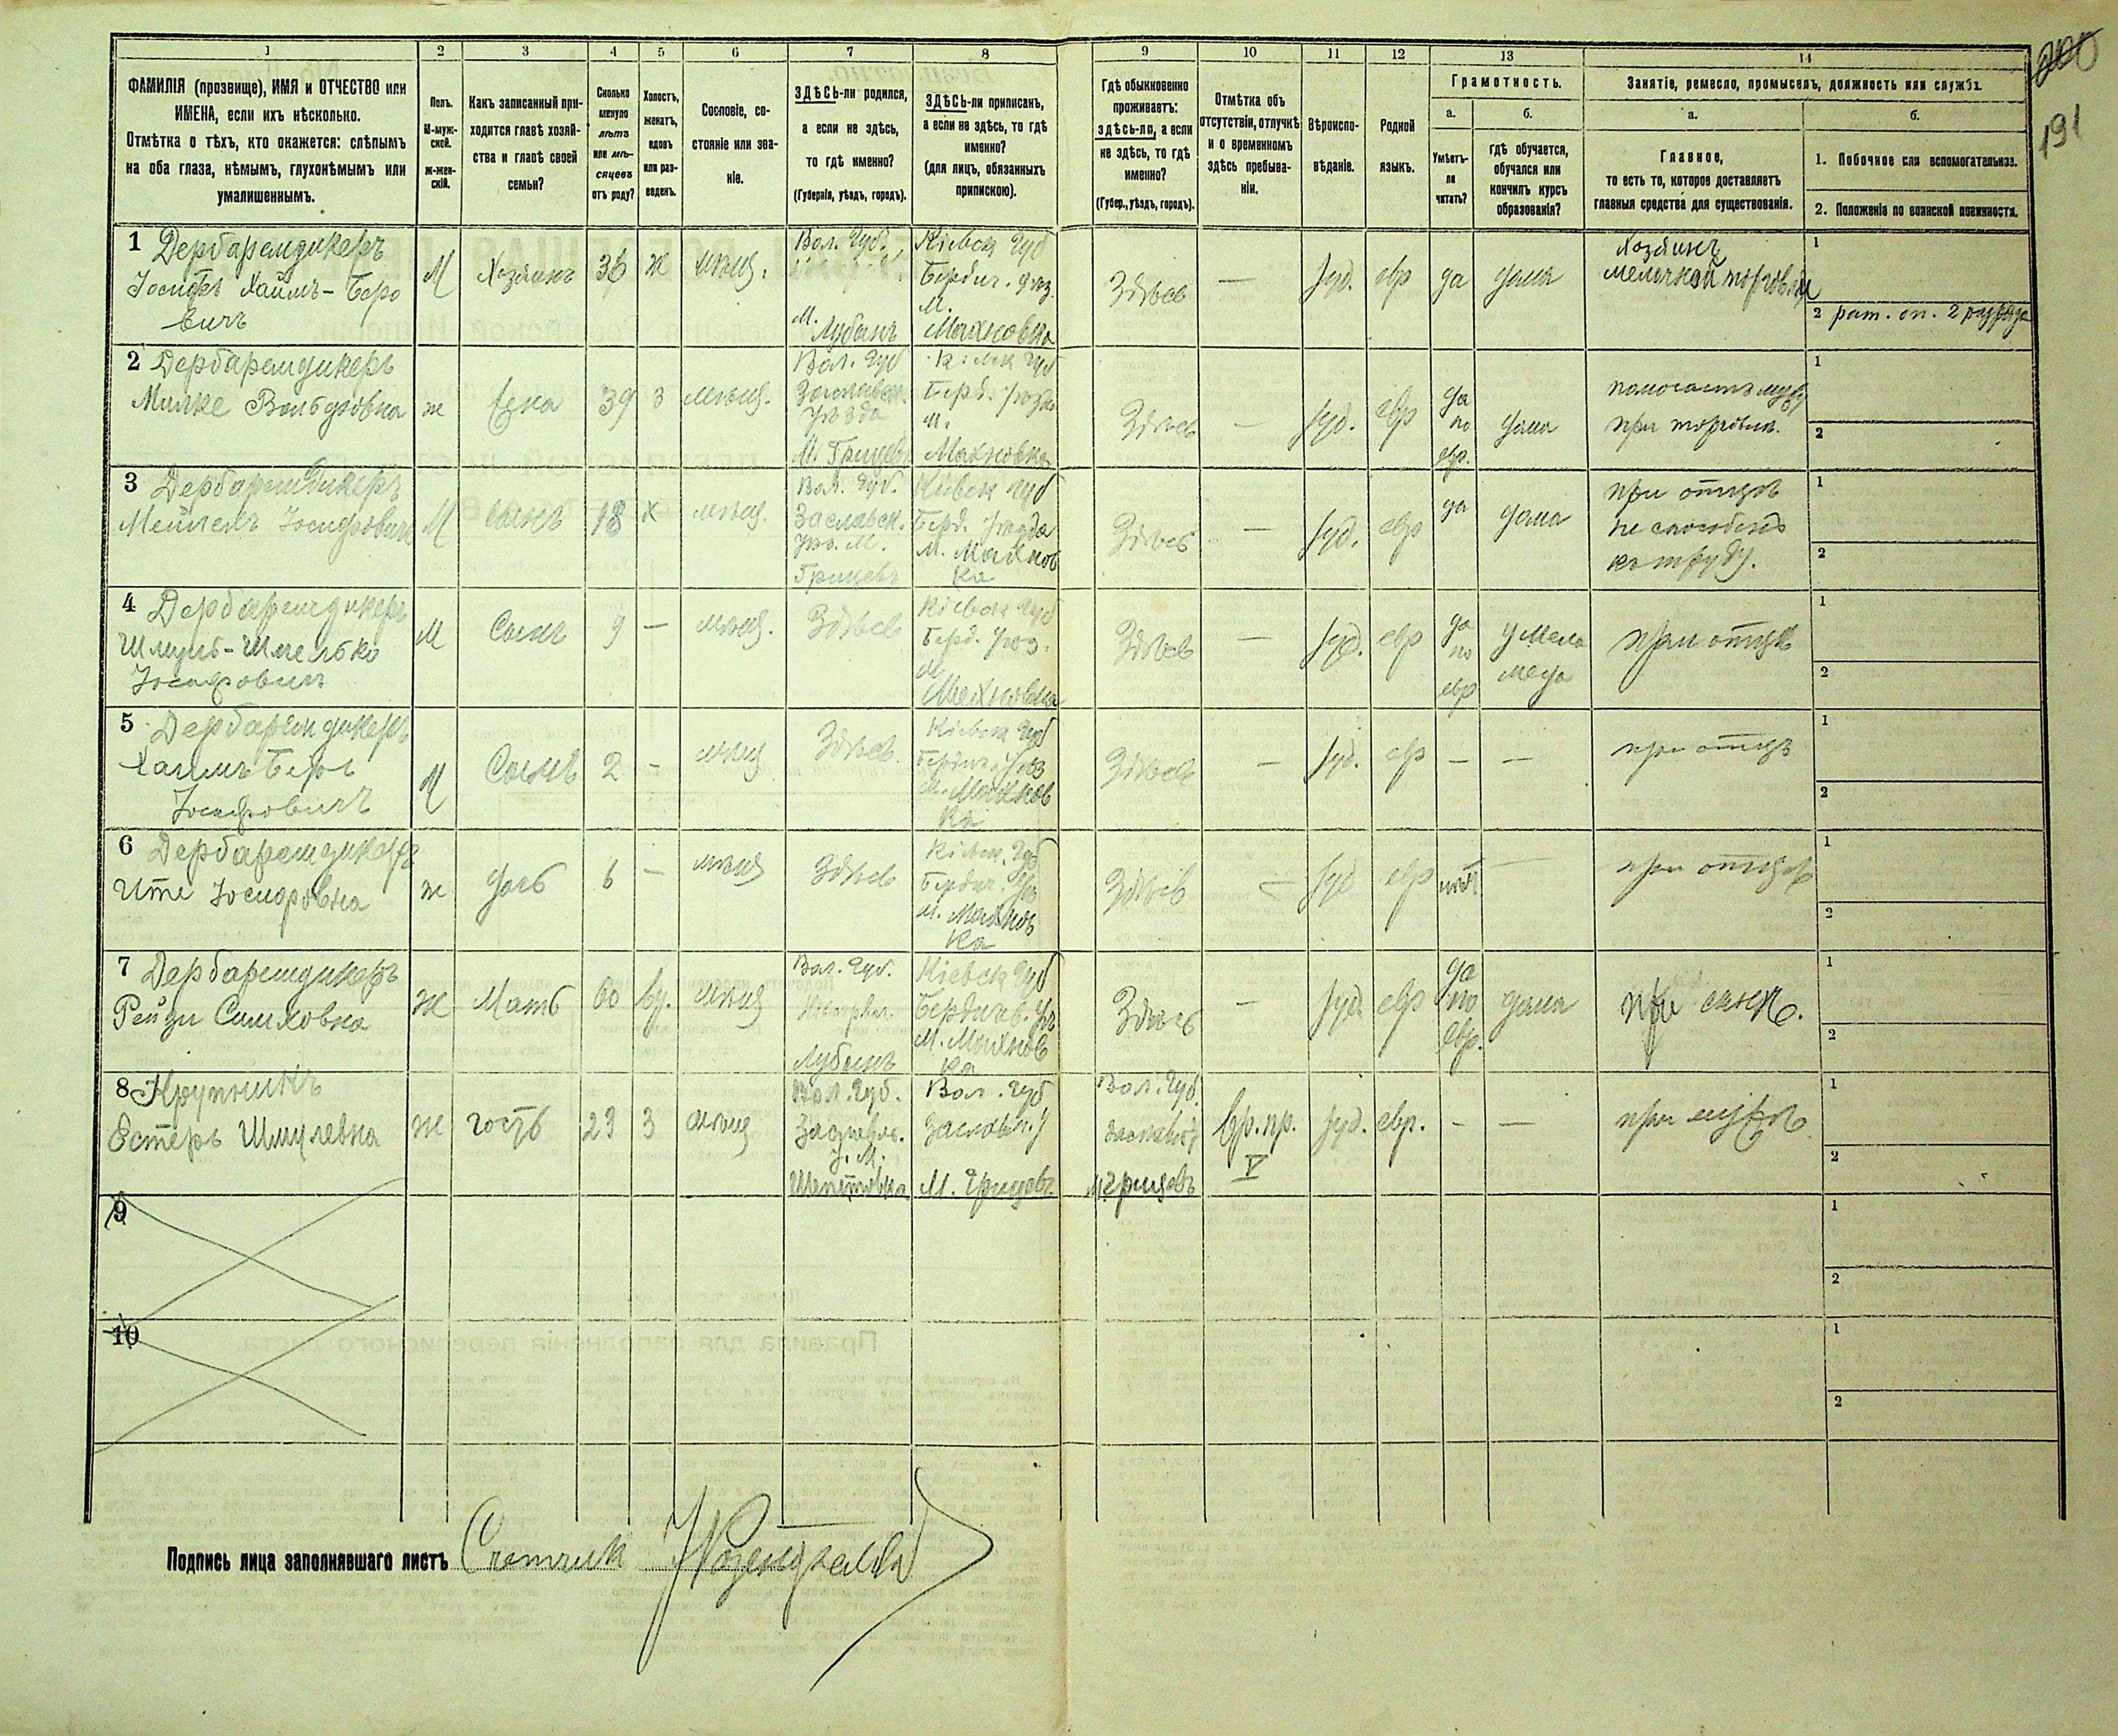 200
191
1
2
3
4
5
6
7
8
9
10
11
12
13
14
ФАМИЛІЯ (прозвище), ИМЯ и ОТЧЕСТВО или
ИМЕНА, если ихъ нѣсколько.
Отмѣтка о тѣхъ, кто окажется: слѣпымъ
на оба глаза, нѣмымъ, глухонѣмымъ или
умалишеннымъ.
Полъ.
М-муж-
ской.
ж-жен-
скій.
Какъ записанный при-
ходится главѣ хозяй-
ства и главѣ своей
семьи?
Сколько
минуло
лѣтъ
или мѣ-
сяцевъ
отъ роду?
Холостъ,
женатъ,
вдовъ
или раз-
веденъ.
Сословіе, со-
стояніе или зва-
ніе.
ЗДѢСЬ-ли родился,
а если не здѣсь,
то гдѣ именно?
(Губернія, уѣздъ, городъ).
ЗДѢСЬ-ли приписанъ,
а если не здѣсь, то гдѣ
именно?
(для лицъ, обязанныхъ
припискою).
Гдѣ обыкновенно
проживаетъ:
здѣсь-ли, а если
не здѣсь, то гдѣ
именно?
(Губер., уѣздъ, городъ).
Отмѣтка объ
отсутствіи, отлучкѣ
и о временномъ
здѣсь пребыва-
ніи.
Вѣроиспо-
вѣданіе.
Родной
языкъ.
Грамотность.
а.
Умѣетъ-
ли
читать?
б.
гдѣ обучается,
обучался или
кончилъ курсъ
образованія?
Занятіе, ремесло, промыселъ, должность или служба.
а.
Главное,
то есть то, которое доставляетъ
главныя средства для существованія.
б.
1. Побочное или вспомогательное.
2. Положеніе по воинской повинности.
1 Дербаремдикеръ
Іосифъ Хаимъ-Беро
вичъ
М
Хозяинъ
36
ж
мѣщ.
Вол. Губ.
М.
Лубанъ
Кіевск Губ
Бердич. уѣз.
М.
Махновка
Здѣсь
—
Іуд.
евр
да
дома
Хозяинъ
мелочной торговли
1
2 рат. оп. 2 разряда
2 Дербаремдикеръ
Милке Вольфовна
ж
Жена
39
З
мѣщ.
Вол. Губ
Заславск.
Уѣзда
М. Грицевъ
Кіевск Губ
Берд. Уѣзда
М.
Махновка
Здѣсь
—
Іуд.
евр
да
по
евр.
дома
помогаетъ мужу
при торговлѣ.
1
2
3 Дербаремдикеръ
Мейлехъ Іосифовичъ
М
сынъ
18
х
мѣщ.
Вол. Губ.
Заславск.
Уѣз. М.
Грицевъ
Кіевск Губ
Берд. Уѣзда
М. Махнов
ка
Здѣсь
—
Іуд.
евр
да
дома
при отцѣ
не способенъ
къ труду.
1
2
4 Дербаремдикеръ
Шмуль-Шмелько
Іосифовичъ
М
Сынъ
9
—
мѣщ.
Здѣсь
Кіевск Губ
Берд. Уѣз.
М.
Махновка
Здѣсь
—
Іуд.
евр
да
по
евр
у Мела
меда
при отцѣ
1
2
5 Дербаремдикеръ
Хаимъ Беръ
Іосифовичъ
М
Сынъ
2
—
мѣщ
Здѣсь
Кіевск Губ
Бердич. Уѣз
М. Махнов
ка
Здѣсь
—
Іуд.
евр
—
—
при отцѣ
1
2
6 Дербаремдикеръ
Ите Іосифовна
ж
дочь
6
—
мѣщ
Здѣсь
Кіевск. Губ
Бердич. Уѣз
М. Махнов
ка
Здѣсь
—
Іуд
евр
нѣтъ
—
при отцѣ
1
2
7 Дербаремдикеръ
Рейзи Симховна
ж
Мать
60
вд.
мѣщ
Вол. Губ.
Лубанъ
Кіевск Губ
Бердичев. Уѣз
М. Махнов
ка
Здѣсь
—
Іуд.
евр
да
по
евр.
дома
при сынѣ.
1
2
8 Крупникъ
Естеръ Шмулевна
ж
гость
23
З
мѣщ
Вол. Губ.
Заславль.
У. М.
Шепетовка
Вол. Губ
Заславл. У
М. Грицевъ
Вол. Губ.
Заславск У
М Грицевъ
вр. пр.
V
Іуд.
евр.
—
—
при мужѣ
1
2
9
1
2
10
1
2
Подпись лица заполнявшаго листъ Счетчикъ